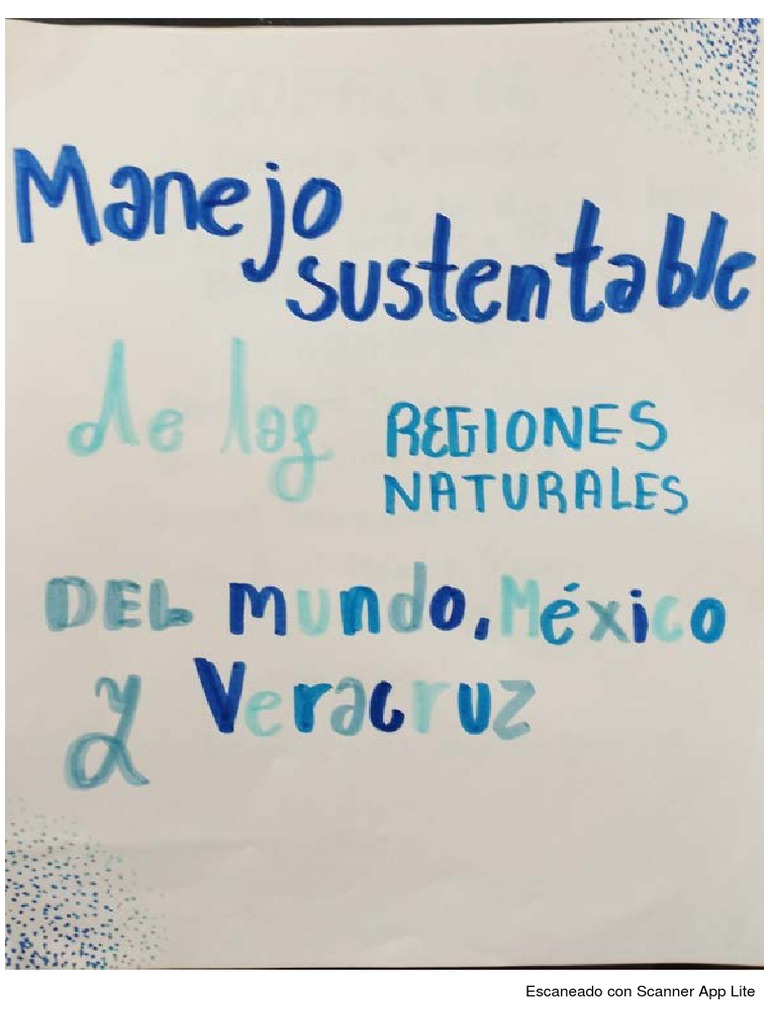 Manejo
sustentable
de las REGIONES
NATURALES
DEL mundo, México
y Veracruz
Escaneado con Scanner App Lite